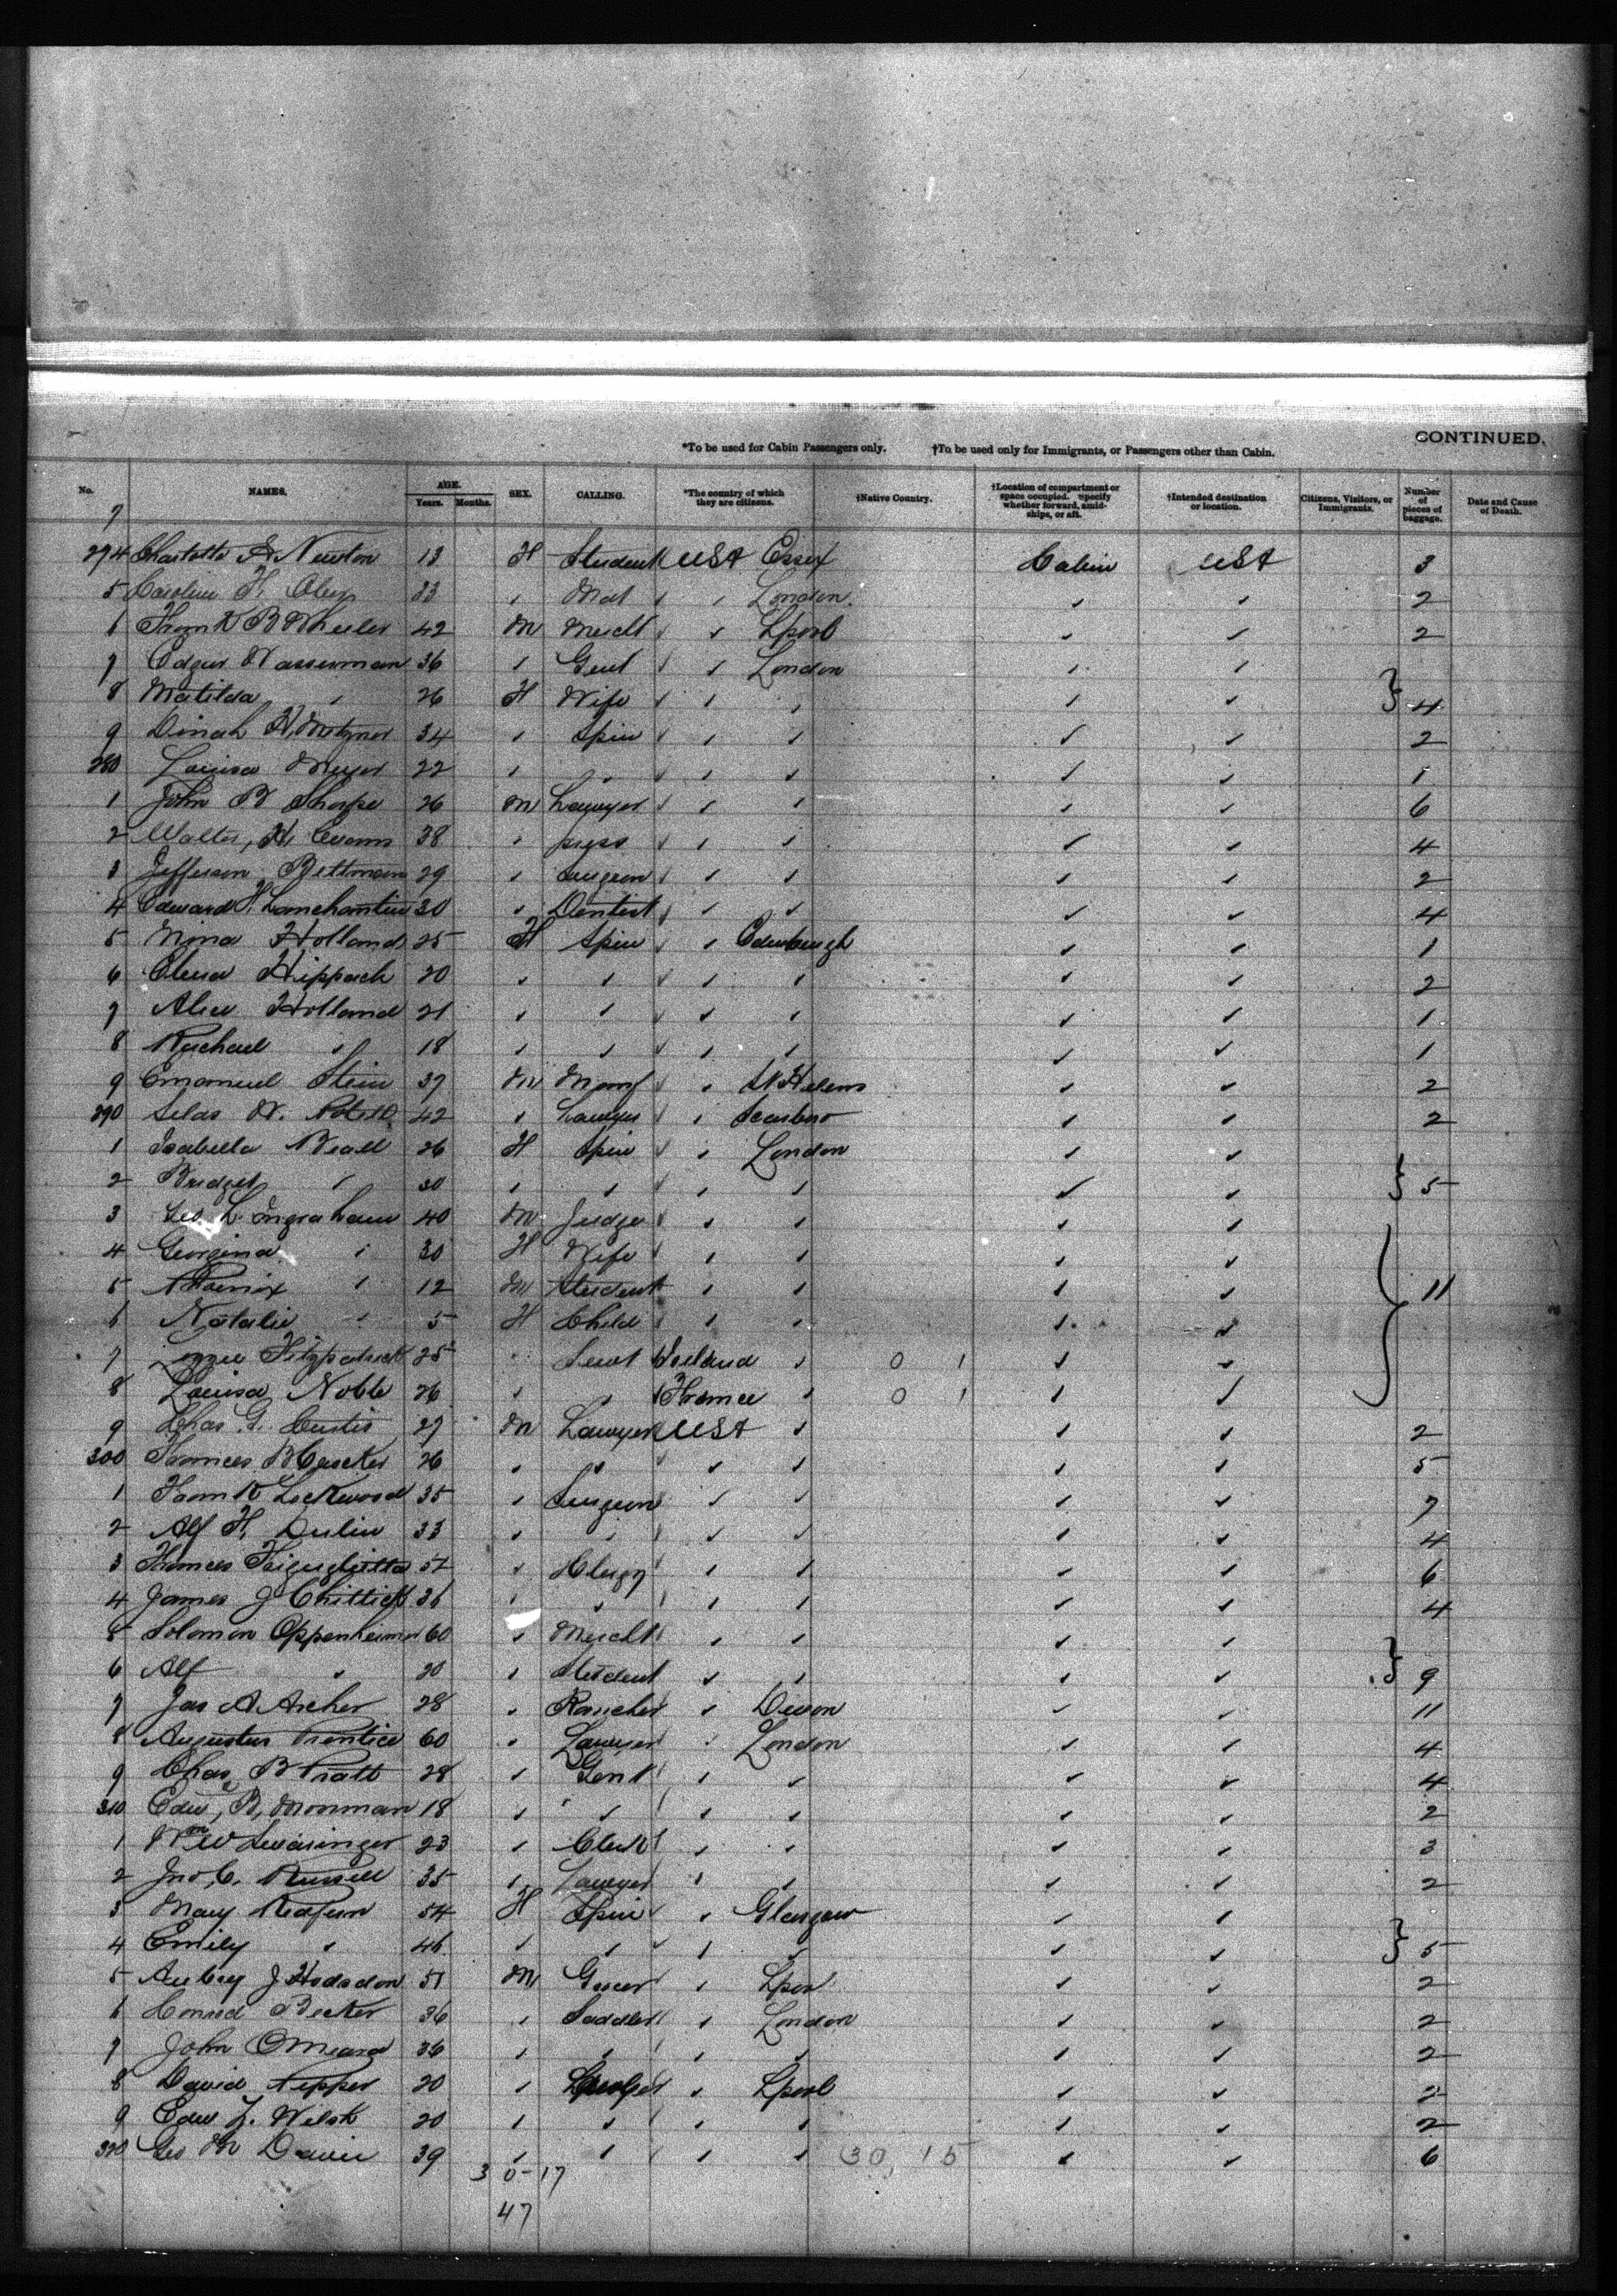 CONTINUED.
*To be used for Cabin Passengers only. †To be used only for Immigrants, or Passengers other than Cabin.
No. NAMES. AGE. Years. Months. SEX. CALLING. *The country of which they are citizens. †Native Country. †Location of compartment or space occupied. Specify whether forward, amidships, or aft. †Intended destination or location. Citizens, Visitors, or Immigrants. Number of pieces of baggage. Date and Cause of Death.
7
274 Charlotte A Newton 13 H Student USA Essex Cabin USA 3
5 Caroline H. 33 " London 2
6 Frank B Wheeler 42 M Mercht " Lpool 2
7 Edgar Wasserman 36 " Gent " London
8 Matilda " 26 H Wife " " } 4
9 Dinah 34 " Spin " " 2
280 Louisa Meyer 22 " " " " 1
1 John B Sharpe 26 M Lawyer " " 6
2 Walter H. Evans 38 " " " 4
3 Jefferson Bettman 29 " Surgeon " " 2
4 Edward H. 30 " Dentist " " 4
5 Nina Holland 25 H Spin " Edenburgh 1
6 Hippach 20 " " " " 2
7 Alice Holland 21 " " " " 1
8 " 18 " " " " 1
9 Emanuel Stein 37 M Manf " St Helens 2
290 Silas W. 42 " Lawyer " Scarboro 2
1 Isabella Beall 26 H Spin " London
2 Bridget " 30 " " " " } 5
3 Geo L. Ingraham 40 M Judge " "
4 Georgina " 30 H Wife " "
5 Phoenix " 12 M Student " " 11
6 Natalie " 5 H Child " "
7 Lizzie Fitzpatrick 25 " Servt Ireland " 0 1
8 Louisa Noble 26 " " France " 0 1
9 Chas G. Curtis 27 M Lawyer USA " 2
300 26 " " " " 5
1 Frank Lockwood 35 " Surgeon " " 7
2 Alf H. Dulin 33 " " " " 4
3 " Clergy " " 6
4 James J Chittick 36 " " " " 4
5 Solomon Oppenheimer 60 " Mercht " "
6 Alf " 20 " Student " " } 9
7 Jas A Archer 28 " Rancher " Devon 11
8 Augustus Prentice 60 " Lawyer " London 4
9 Chas B Pratt 28 " Gent " " 4
310 Edw. B. 18 " " " " 2
1 Wm W Swasinger 23 " Clerk " " 3
2 Jno. C. Russell 35 " Lawyer " " 2
3 Mary 54 H Spin " Glasgow
4 Emily " 46 " " " " } 5
5 Aubrey J Hodsdon 51 M Grocer " Lpool 2
6 Conrad Becker 36 " Saddler " London 2
7 John OMeara 36 " " " " 2
8 David Pepper 20 " " Lpool 2
9 Edw Z. Welsh 20 " " " " 2
320 Geo M Davie 39 " " " " 30, 15 6
30-17
47